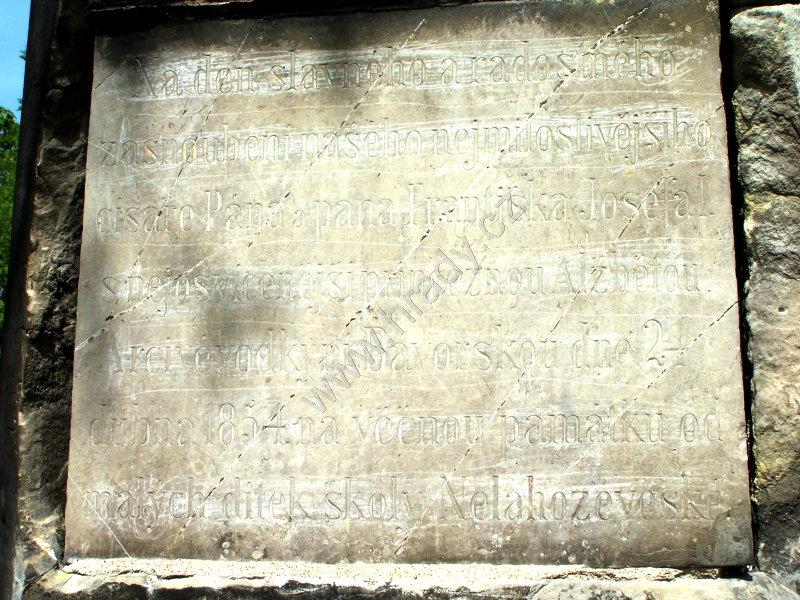 Na den slavného a radostného
zasnoubení našeho nejmilostivějšího
císaře Pána a pana Františka Josefa I.
s nejosvícenější princeznou Alžbětou
Arcivévodkyní bavorskou dne 24
dubna 1854 na věčnou památku od
malých dítek školy Nelahozeveské.
www.hrady.cz